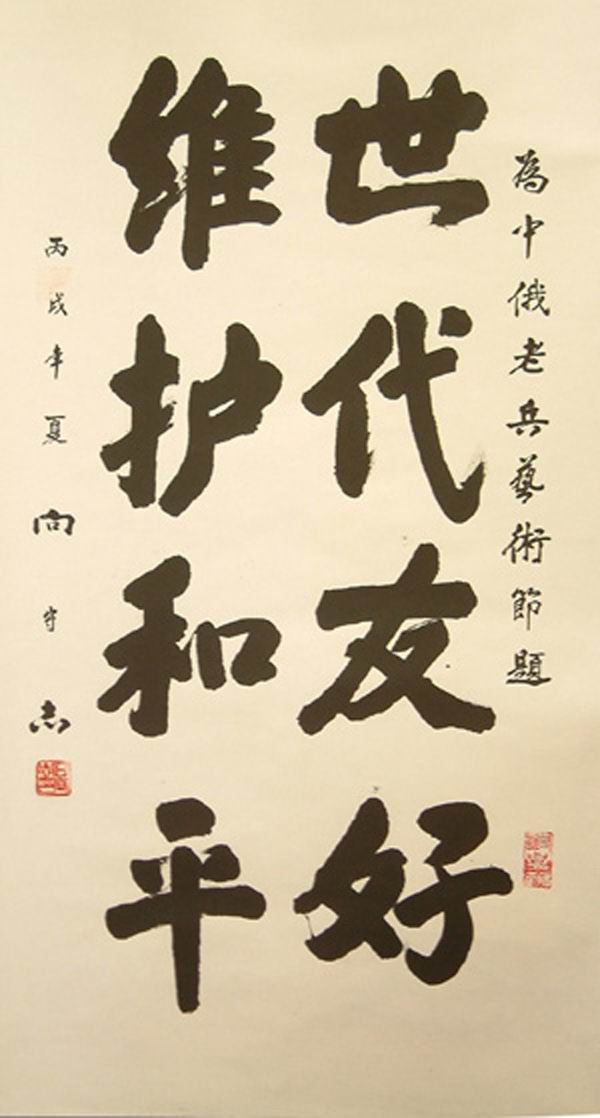 為中俄老兵藝術節題
世代友好
维护和平
丙戌年夏 向守志